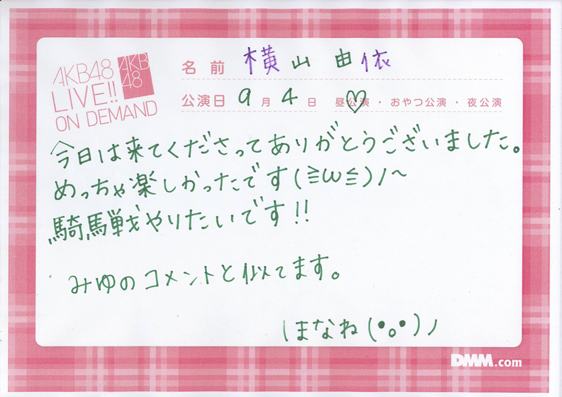 AKB48
LIVE!!
ON DEMAND
AKB
48
名前 横山由依
公演日 9月4日 昼公演・おやつ公演・夜公演
今日は来てくださってありがとうございました。
めっちゃ楽しかったです(≧ω≦)ノ〜
騎馬戦やりたいです!!
みゆのコメントと似てます。
ほなね(•o•)ノ
DMM.com